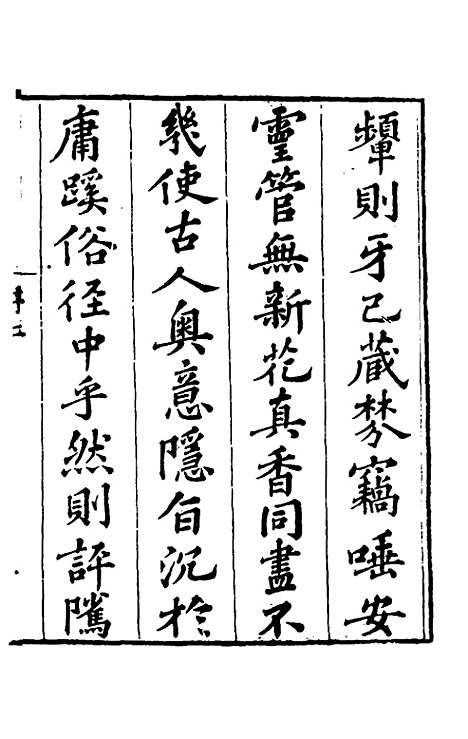 顰則牙已蔵棼竊唾安
靈管無新花真香同盡不
幾使古人奥意隱自沉於
庸蹊俗径中乎然則評隲